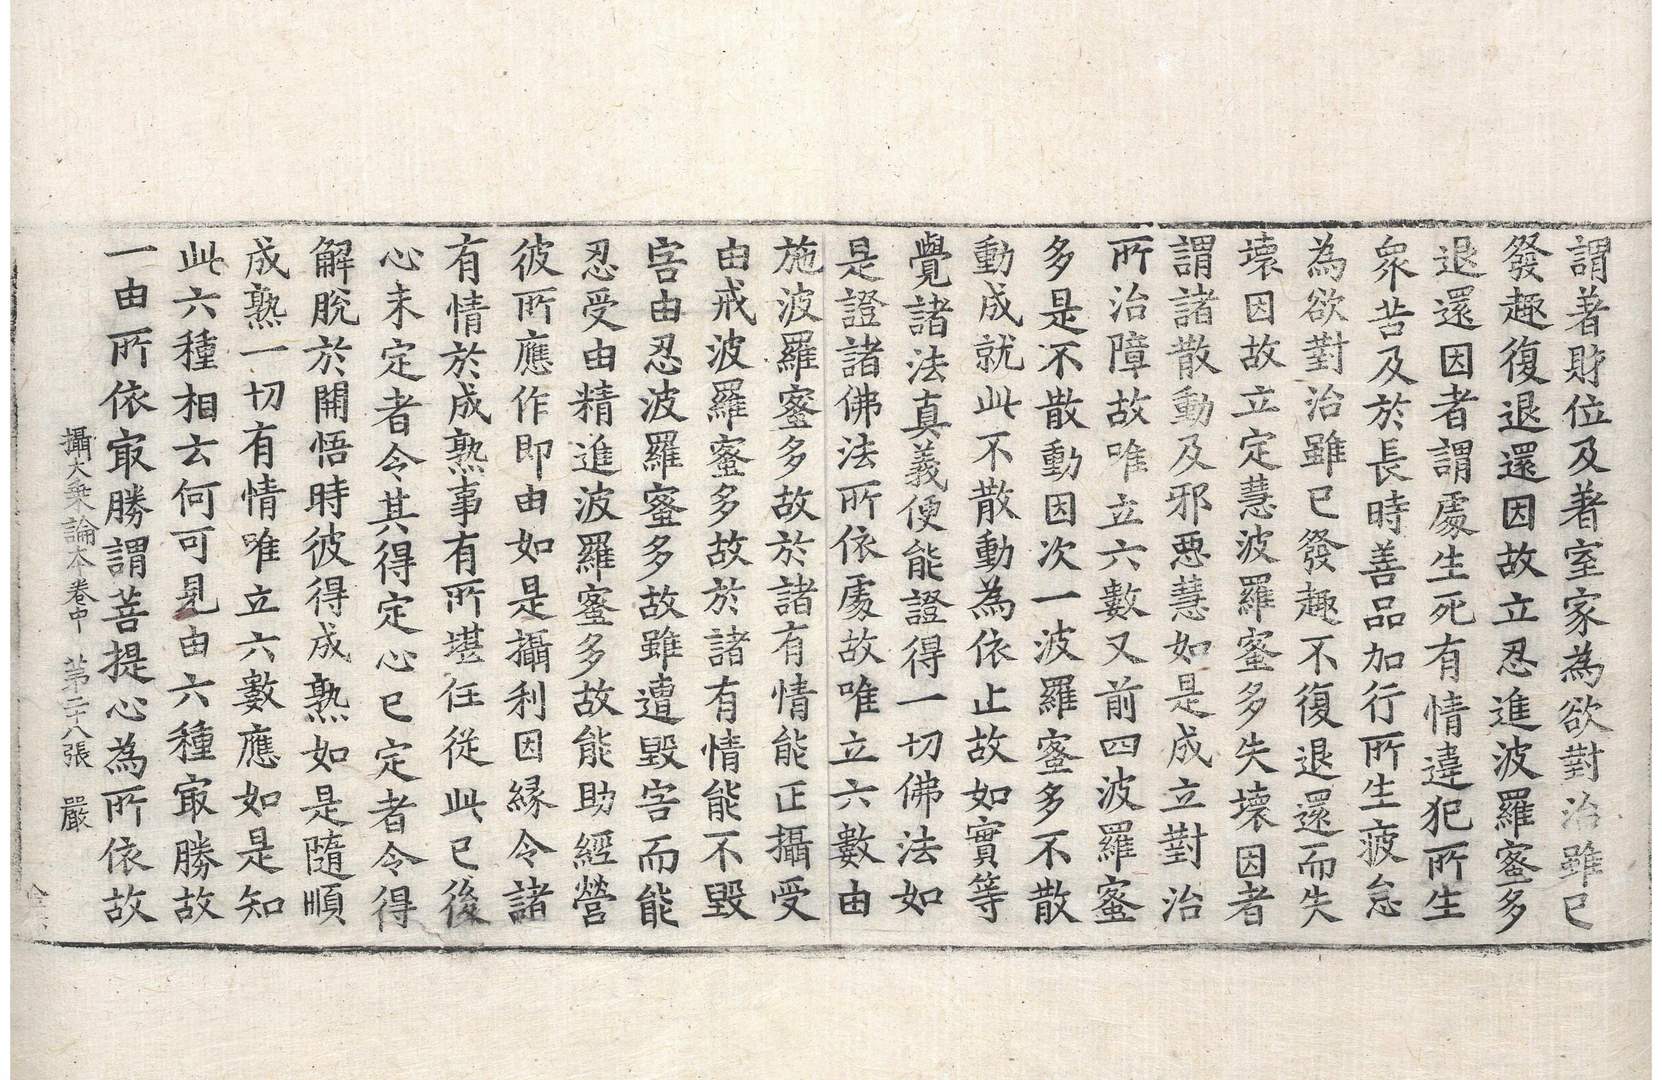 謂著財位及著室家為欲對治雖已
發趣復退還因故立忍進波羅蜜多
退還因者謂處生死有情違犯所生
衆苦及於長時善品加行所生疲怠
為欲對治雖已發趣不復退還而失
壞因故立定慧波羅蜜多失壞因者
謂諸散動及邪惡慧如是成立對治
所治障故唯立六數又前四波羅蜜
多是不散動因次一波羅蜜多不散
動成就此不散動為依止故如實等
覺諸法真義便能證得一切佛法如
是證諸佛法所依處故唯立六數由
施波羅蜜多故於諸有情能正攝受
由戒波羅蜜多故於諸有情能不毀
害由忍波羅蜜多故雖遭毀害而能
忍受由精進波羅蜜多故能助經營
彼所應作即由如是攝利因緣令諸
有情於成熟事有所堪任從此已後
心未定者令其得定心已定者令得
解脫於開悟時彼得成熟如是隨順
成熟一切有情唯立六數應如是知
此六種相云何可見由六種㝡勝故
一由所依㝡勝謂菩提心為所依故
攝大乘論本卷中 第二十八張 嚴